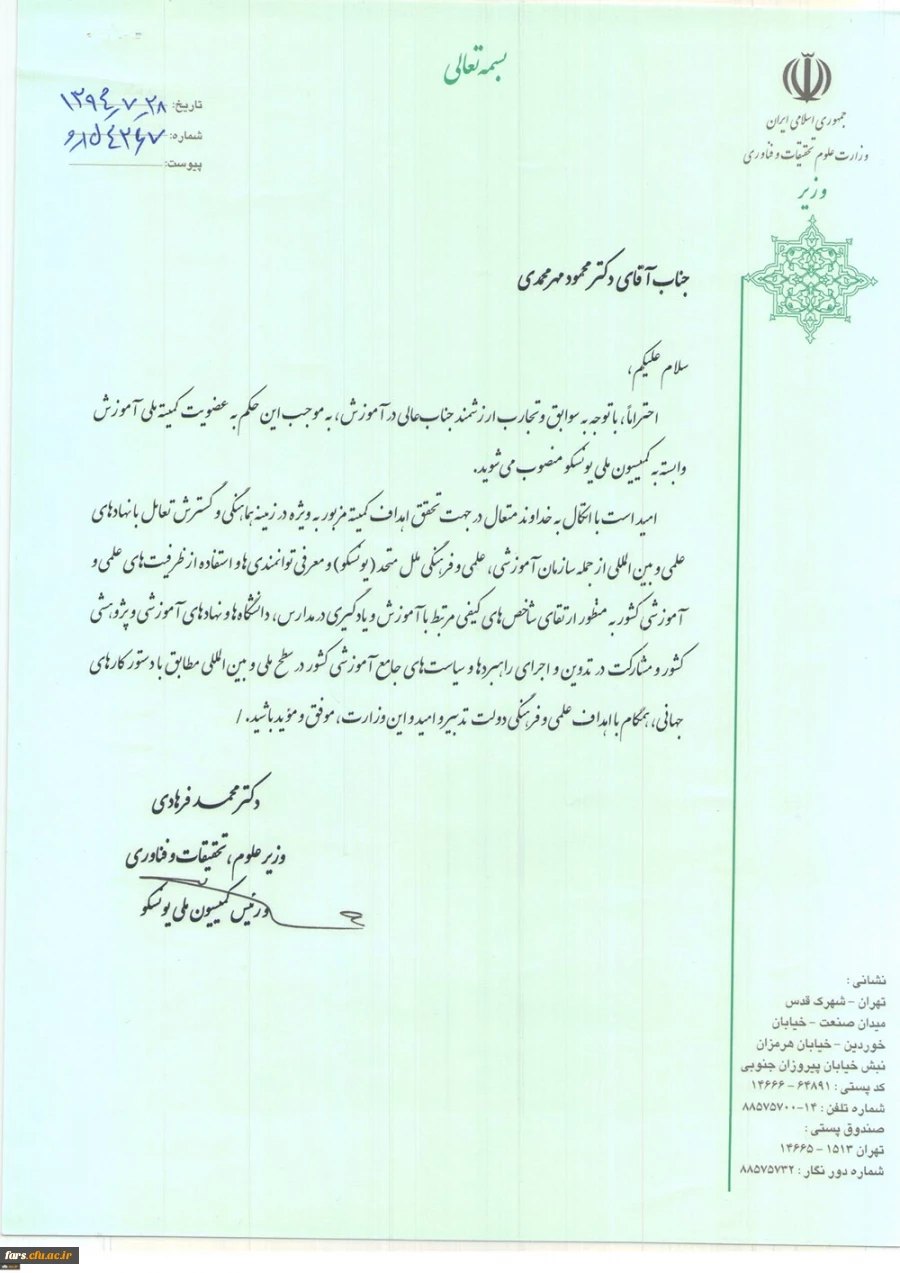 بسمه تعالی
جمهوری اسلامی ایران
وزارت علوم تحقیقات و فناوری
وزیر
تاریخ: ۱۳۹۴٫۷٫۲۸
شماره:
پیوست:
جناب آقای دکتر محمود مهرمحمدی
سلام علیکم،
احتراماً، با توجه به سوابق و تجارب ارزشمند جناب‌عالی در آموزش، به موجب این حکم به عضویت کمیته ملی آموزش
وابسته به کمیسیون ملی یونسکو منصوب می‌شوید.
امید است با اتکال به خداوند متعال در جهت تحقق اهداف کمیته مزبور به ویژه در زمینه هماهنگی و گسترش تعامل با نهادهای
علمی و بین المللی از جمله سازمان آموزشی، علمی و فرهنگی ملل متحد (یونسکو) و معرفی توانمندی‌ها و استفاده از ظرفیت‌های علمی و
آموزشی کشور به منظور ارتقای شاخص‌های کیفی مرتبط با آموزش و یادگیری در مدارس، دانشگاه‌ها و نهادهای آموزشی و پژوهشی
کشور و مشارکت در تدوین و اجرای راهبردها و سیاست‌های جامع آموزشی کشور در سطح ملی و بین المللی مطابق با دستور کارهای
جهانی، همگام با اهداف علمی و فرهنگی دولت تدبیر و امید و این وزارت، موفق و مؤید باشید. /
دکتر محمد فرهادی
وزیر علوم، تحقیقات و فناوری
و رئیس کمیسیون ملی یونسکو
نشانی :
تهران - شهرک قدس
میدان صنعت - خیابان
خوردین - خیابان هرمزان
نبش خیابان پیروزان جنوبی
کد پستی : ۶۴۸۹۱ - ۱۴۶۶۶
شماره تلفن : ۱۴-۸۸۵۷۵۷۰۰
صندوق پستی :
تهران ۱۵۱۳ - ۱۴۶۶۵
شماره دور نگار : ۸۸۵۷۵۷۳۲
fars.cfu.ac.ir